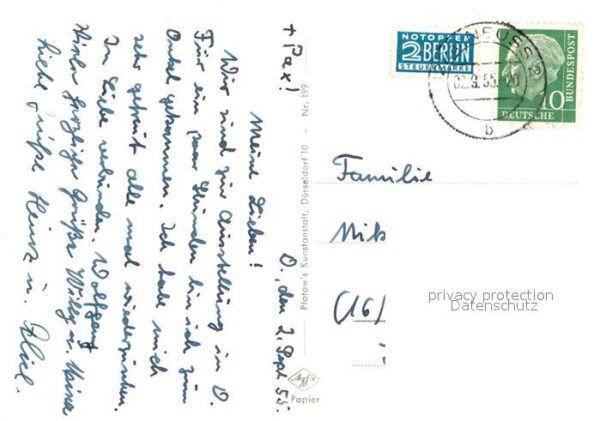 + Pax!
D., den 2. Sept 55.
Meine Lieben!
Wir sind zur Ausstellung in D.
Für ein paar Stunden bin ich zum
Onkel gekommen. Ich habe mich
sehr gefreut alle mal wiederzusehen.
In Liebe verbunden, Wolfgang
Viele herzliche Grüße Willy u.
Liebe Grüße Heinz u.
Platow's Kunstanstalt, Düsseldorf 10 - Nr. 199
Papier
NOTOPFER
2 BERLIN
STEUERMARKE
NEUSS 2
02.9.55.-20
b
10
DEUTSCHE
BUNDESPOST
Familie
(16)
privacy protection
Datenschutz